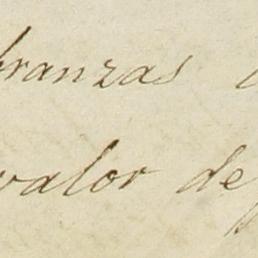 branzas
valor de